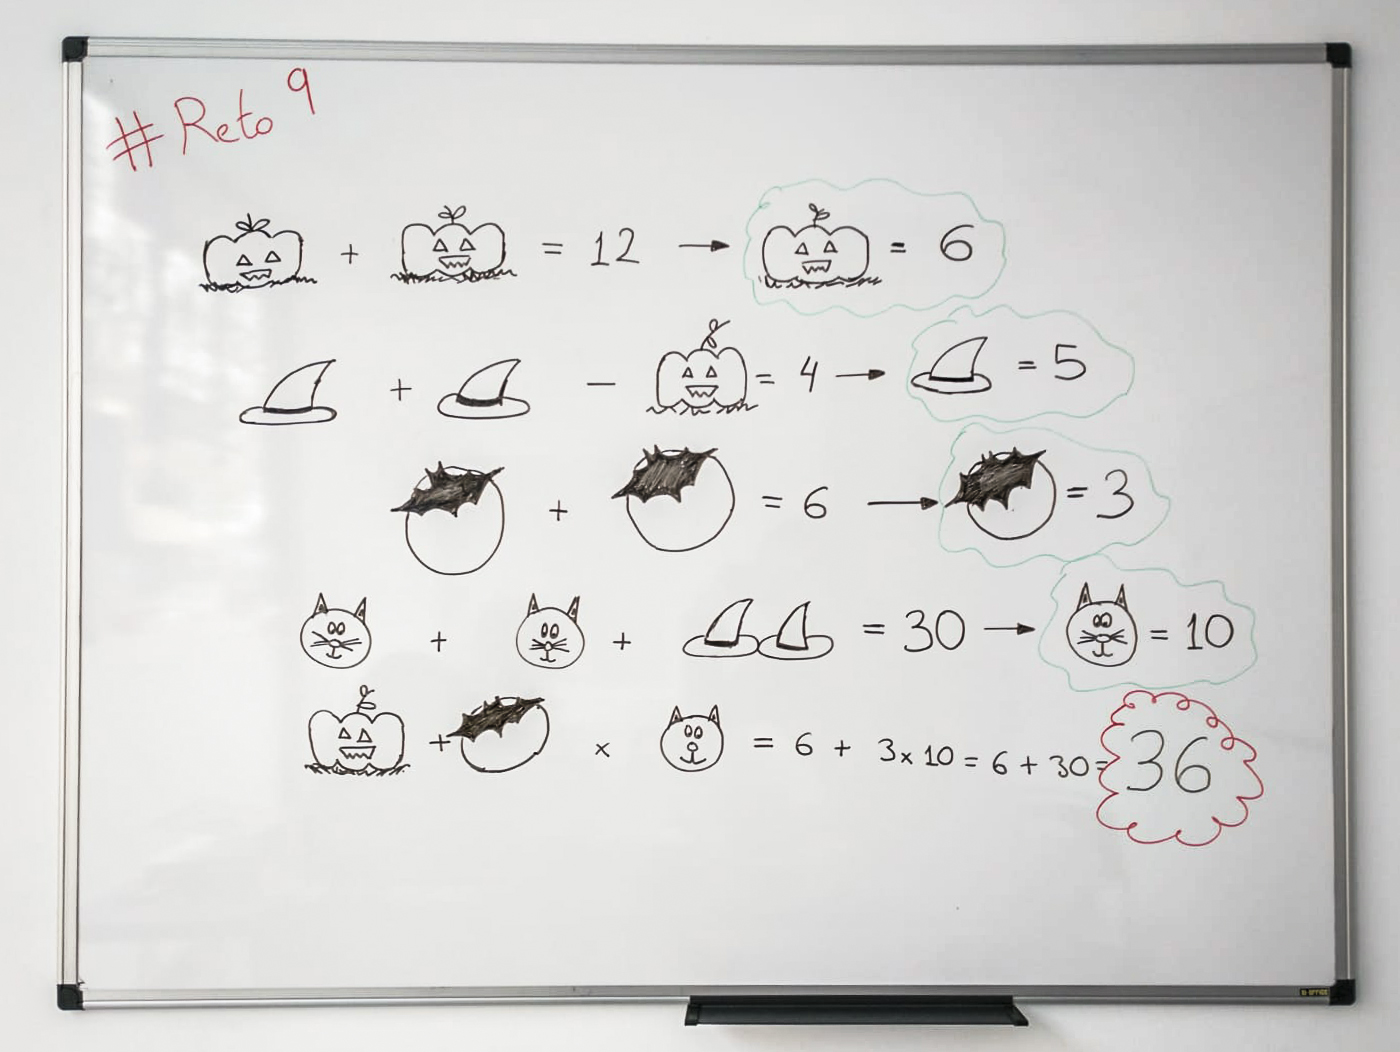 #Reto 9
+ = 12 → = 6
+ - = 4 → = 5
+ = 6 → = 3
+ + = 30 → = 10
+ x = 6 + 3x10 = 6 + 30 = 36